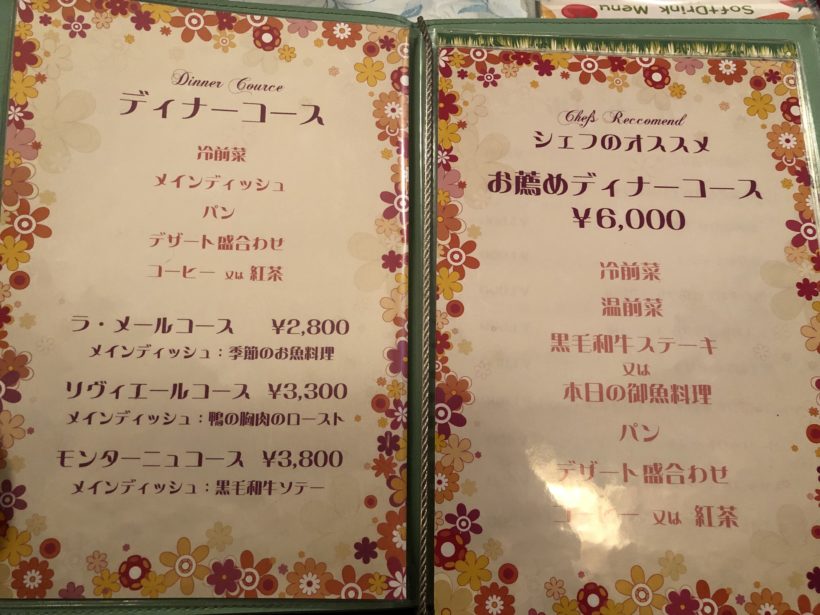 Dinner Cource
ディナーコース
冷前菜
メインディッシュ
パン
デザート盛合わせ
コーヒー 又は 紅茶
ラ・メールコース ¥2,800
メインディッシュ：季節のお魚料理
リヴィエールコース ¥3,300
メインディッシュ：鴨の胸肉のロースト
モンターニュコース ¥3,800
メインディッシュ：黒毛和牛ソテー
SoftDrink Menu
Chefs Reccomend
シェフのオススメ
お薦めディナーコース
¥6,000
冷前菜
温前菜
黒毛和牛ステーキ
又は
本日の御魚料理
パン
デザート盛合わせ
コーヒー 又は 紅茶